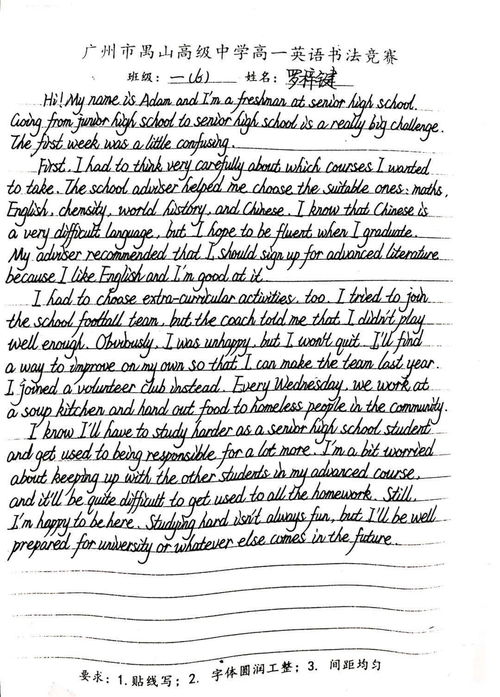 广州市禺山高级中学高一英语书法竞赛
班级：一(6) 姓名：罗梓键
Hi! My name is Adam and I'm a freshman at senior high school.
Going from junior high school to senior high school is a really big challenge.
The first week was a little confusing.
First, I had to think very carefully about which courses I wanted
to take. The school adviser helped me choose the suitable ones: maths,
English, chemsity, world history, and Chinese. I know that Chinese is
a very difficult language, but I hope to be fluent when I graduate.
My adviser recommended that I should sign up for advanced literature
because I like English and I'm good at it.
I had to choose extra-curricular activities, too. I tried to join
the school foottall team, but the coach told me that I didn't play
well enough. Obviously, I was unhappy, but I won't quit. I'll find
a way to improve on my own so that I can make the team last year.
I joined a volunteer club instead. Every Wednesday, we work at
a soup kitchen and hand out food to homeless people in the community.
I know I'll have to study harder as a senior high school student
and get used to being responsible for a lot more. I'm a bit worried
about keeping up with the other students in my advanced course,
and it'll be quite difficult to get used to all the homework. Still,
I'm happy to be here. Studying hard isn't always fun, but I'll be well
prepared for university or whatever else comes in the future.
要求：1.贴线写；2. 字体圆润工整；3. 间距均匀